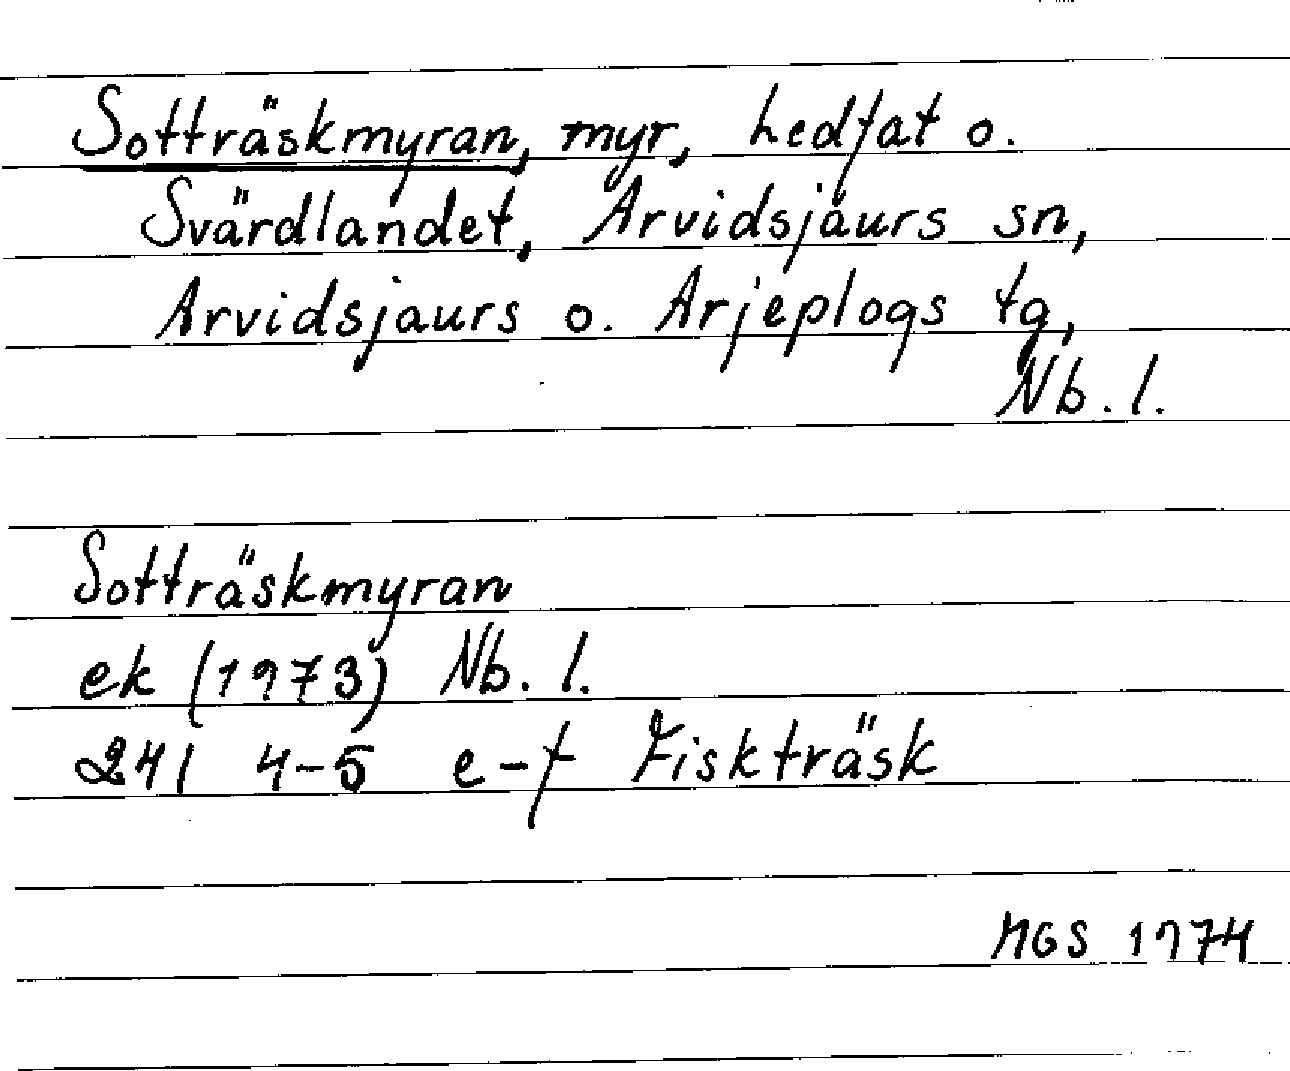 Sotträskmyran, myr, Ledfat o.
Svärdlandet, Arvidsjaurs sn,
Arvidsjaurs o. Arjeplogs tg,
Nb. l.
Sotträskmyran
ek (1973) Nb. l.
24 I 4-5 e-f Fiskträsk
MGS 1974